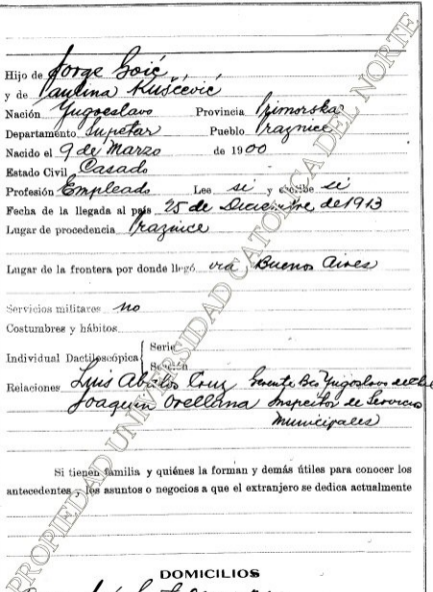 Hijo de Jorge Goić
y de Paulina Kuščević
Nación Yugoeslavo Provincia Primorska
Departamento Supetar Pueblo Praznice
Nacido el 9 de Marzo de 1900
Estado Civil Casado
Profesión Empleado Lee si y escribe si
Fecha de la llegada al país 25 de Diciembre de 1913
Lugar de procedencia Praznice
Lugar de la frontera por donde llegó via Buenos Aires
Servicios militares no
Costumbres y hábitos
Individual Dactiloscópica { Serie
Sección
Relaciones Luis Abalos Cruz Gerente Bco Yugoslavo de Chile
Joaquin Orellana Inspector de Servicios
Municipales
Si tienen familia y quiénes la forman y demás útiles para conocer los
antecedentes, los asuntos o negocios a que el extranjero se dedica actualmente
DOMICILIOS
PROPIEDAD UNIVERSIDAD CATOLICA DEL NORTE